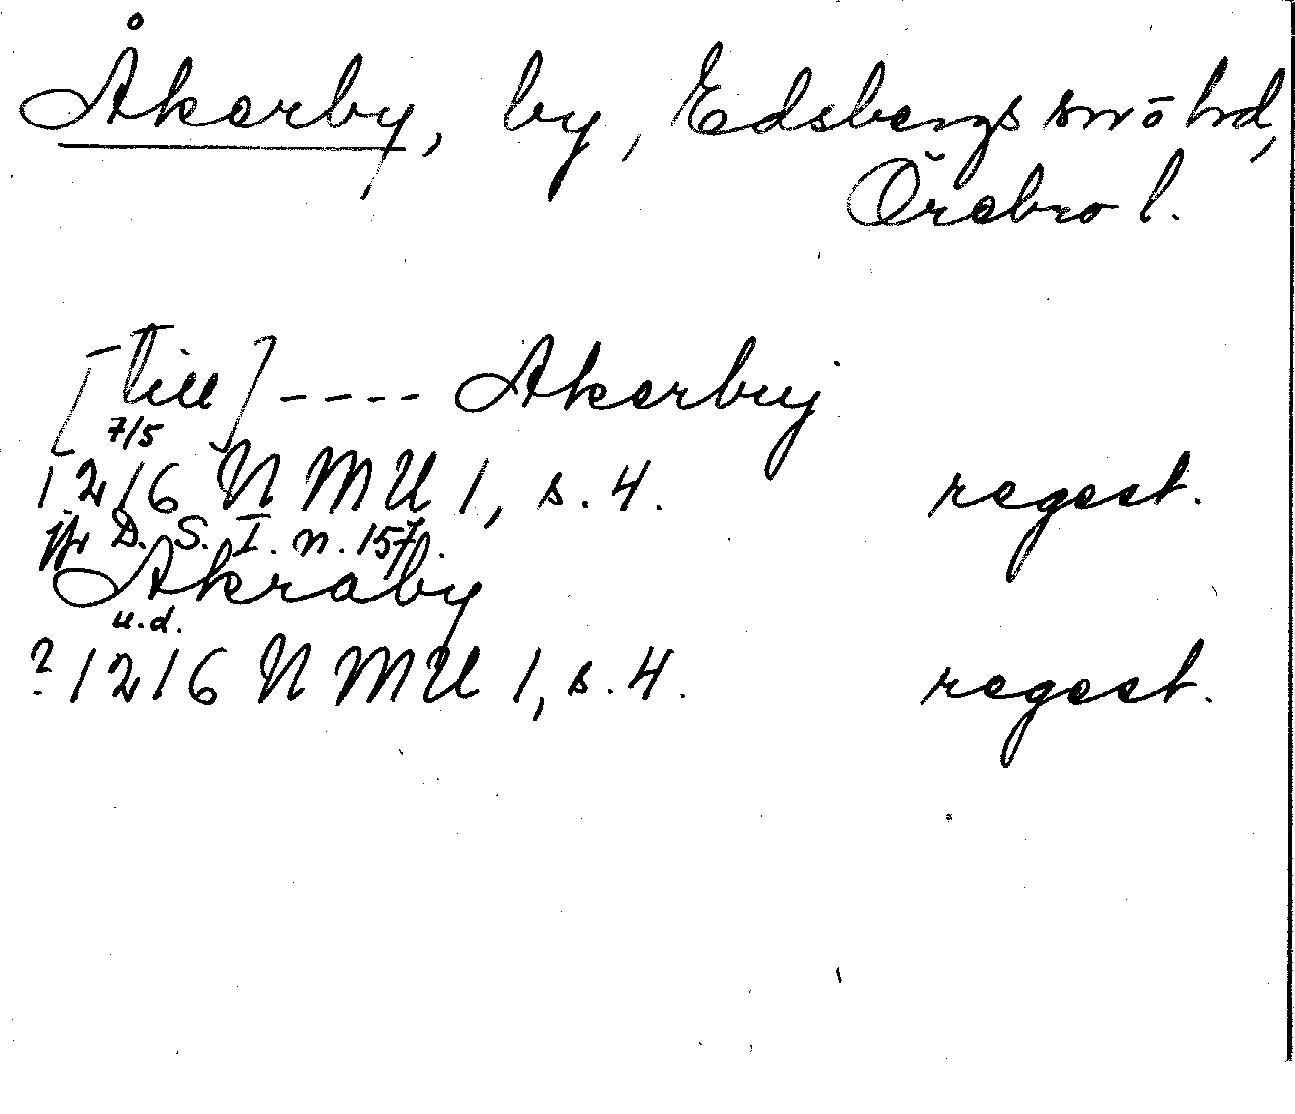 Åkerby, by, Edsbergs sn o hd,
Örebro l.
[Till] ---- Akerby
7/5
1216 NMU 1, s. 4. regest.
jfr D. S. I. n. 157.
Akraby
u.d.
? 1216 NMU 1, s. 4. regest.